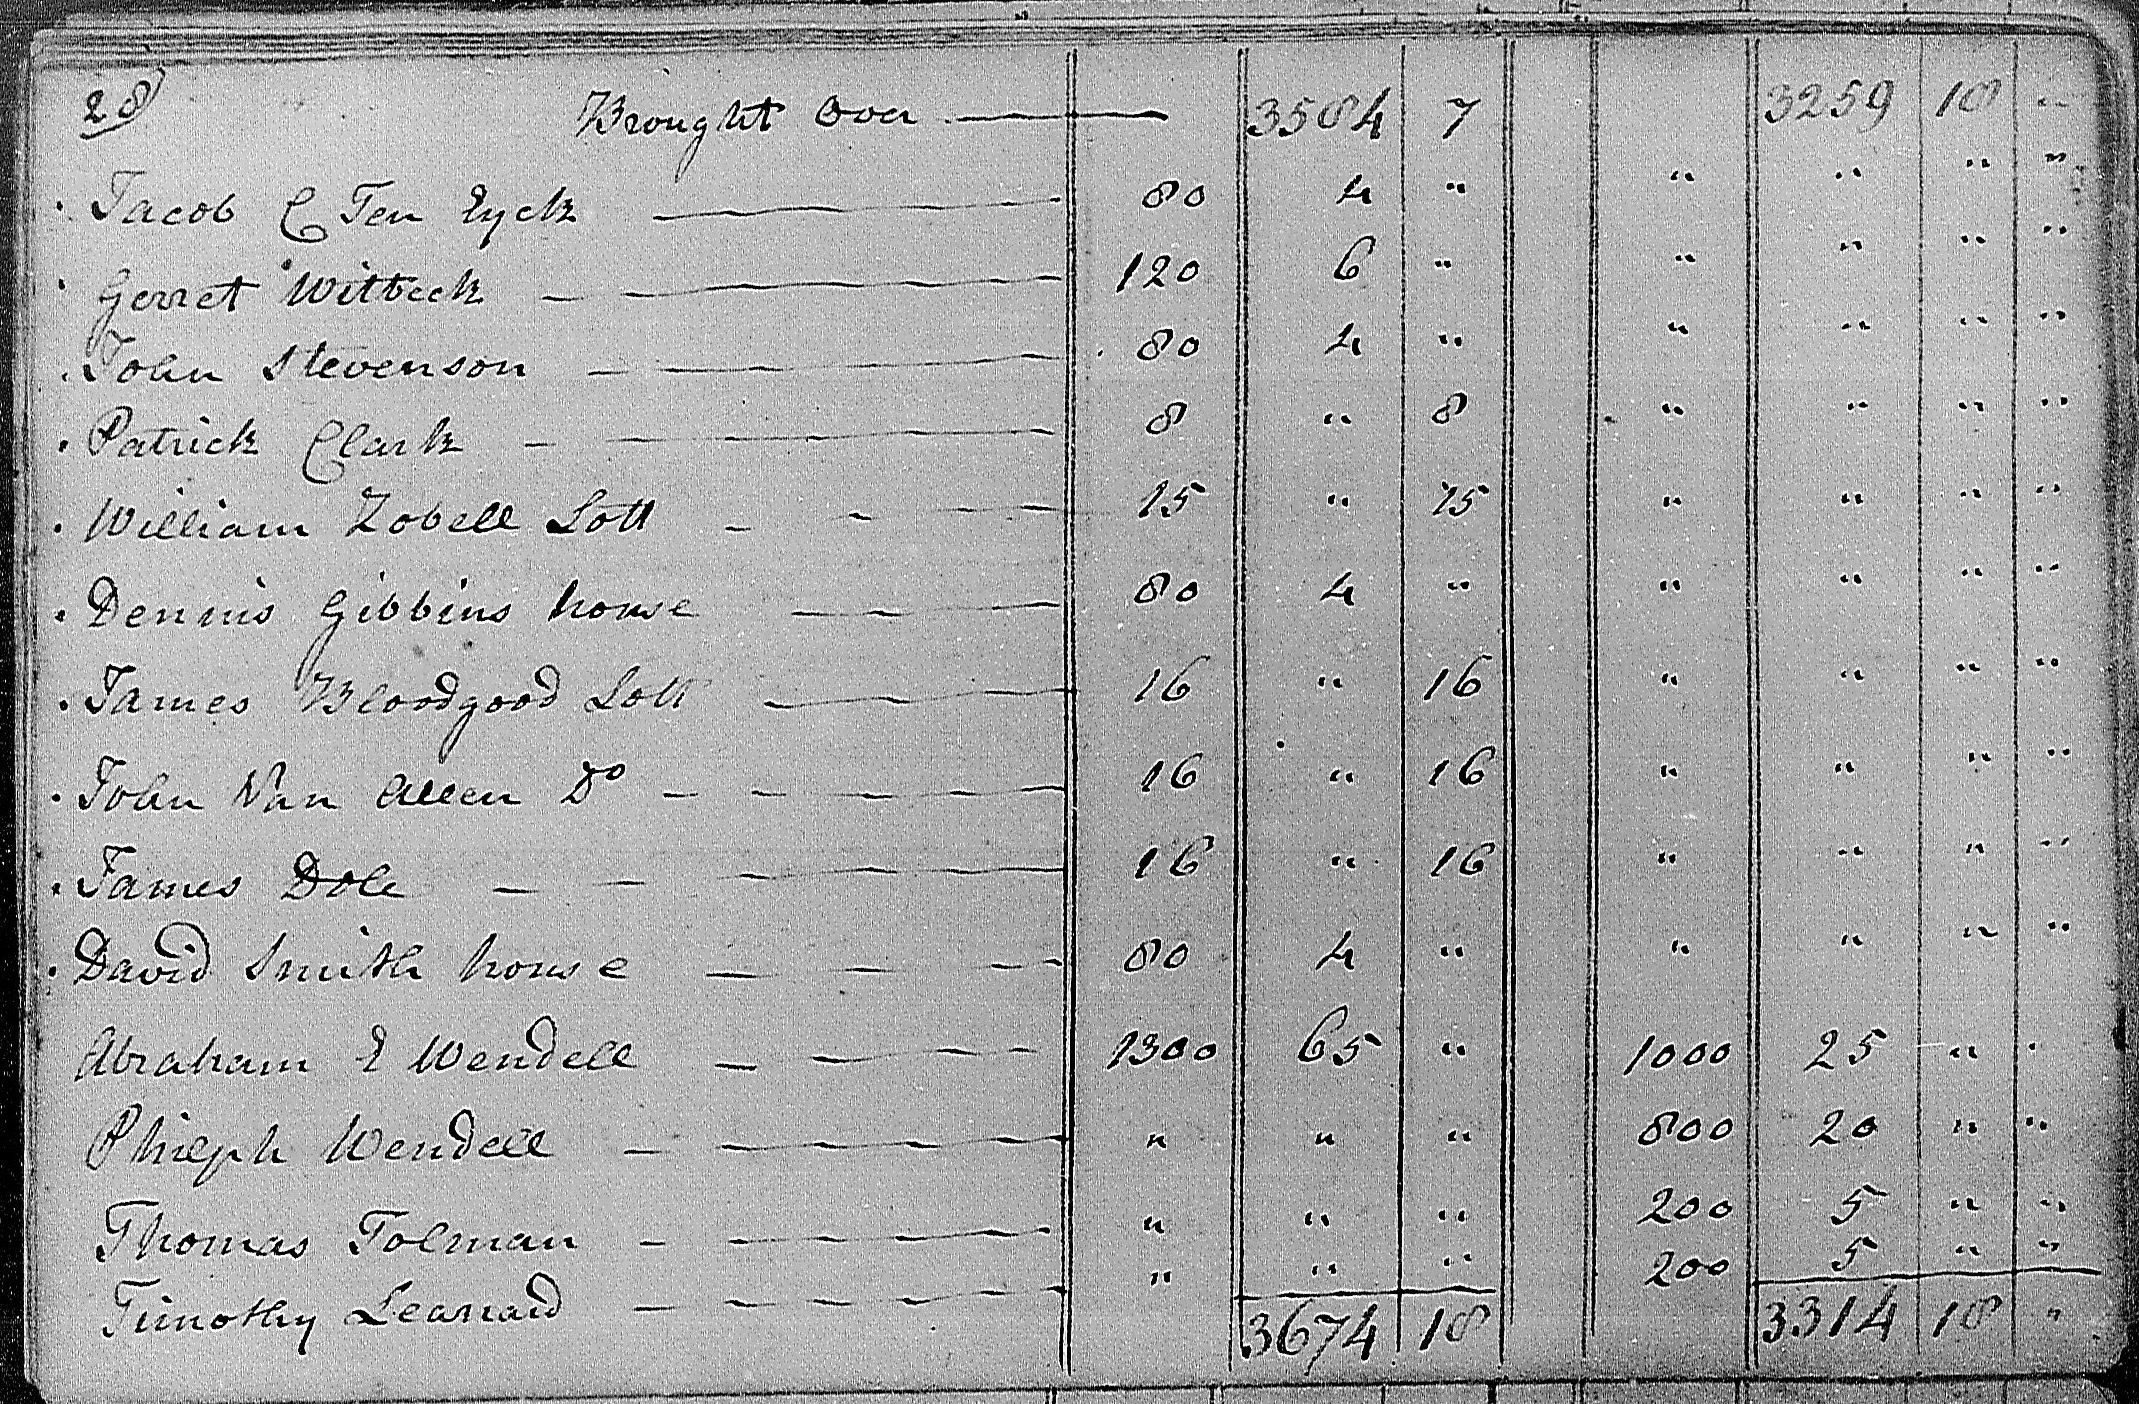 28 Brought Over 3584 7 3259 18 "
Jacob C Ten Eyck 80 4 " " " " "
Gerret Witbeck 120 6 " " " " "
John Stevenson 80 4 " " " " "
Patrick Clark 8 " 8 " " " "
William Zobell Lott 15 " 15 " " " "
Dennis Gibbins house 80 4 " " " " "
James Bloodgood Lott 16 " 16 " " " "
John Van Allen Do 16 " 16 " " " "
James Dole 16 " 16 " " " "
David Smith house 80 4 " " " " "
Abraham E Wendell 1300 65 " 1000 25 " "
Philiph Wendell " " " 800 20 " "
Thomas Tolman " " " 200 5 " "
Timothy Learnard " " " 200 5 " "
3674 18 3314 18 "